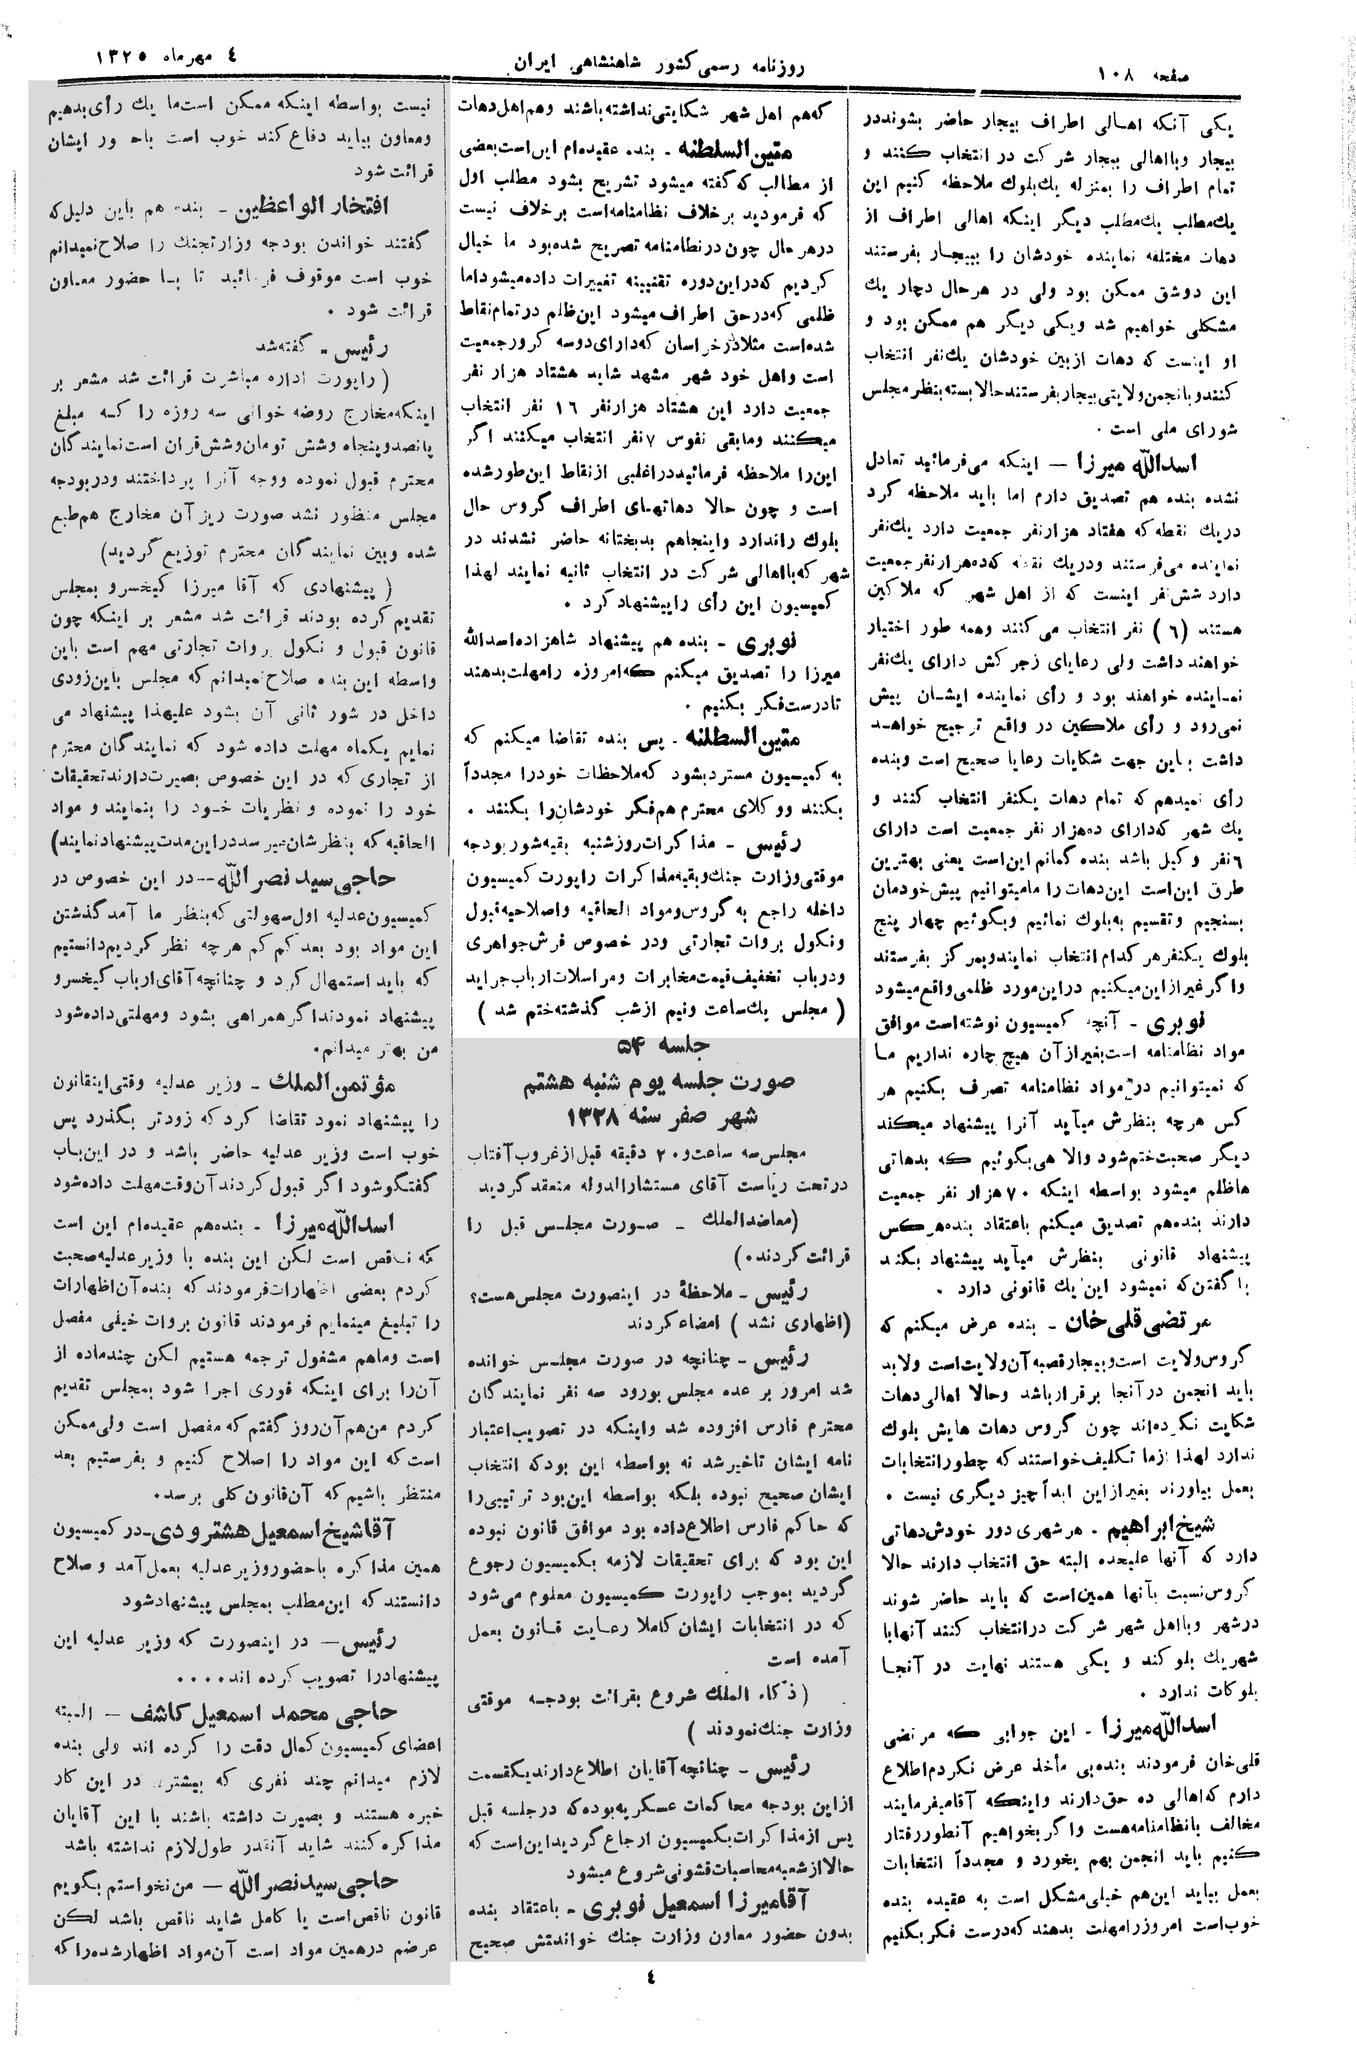 صفحه ۱۰۸
روزنامه رسمی کشور شاهنشاهی ایران
٤ مهرماه ۱۳۲٥
یکی آنکه اهالی اطراف بیجار حاضر بشوند در
بیجار و با اهالی بیجار شرکت در انتخاب کنند و
تمام اطراف را بمنزله یك بلوك ملاحظه کنیم این
یك مطلب یك مطلب دیگر اینکه اهالی اطراف از
دهات مختلفه نماینده خودشان را ببیجار بفرستند
این دو شق ممکن بود ولی در هر حال دچار یك
مشکلی خواهیم شد و یکی دیگر هم ممکن بود و
او اینست که دهات از بین خودشان یك نفر انتخاب
کنند و با انجمن ولایتی بیجار بفرستند حالا بسته بنظر مجلس
شورای ملی است .
اسدالله میرزا – اینکه می فرمائید تعادل
نشده بنده هم تصدیق دارم اما باید ملاحظه کرد
در یك نقطه که هفتاد هزار نفر جمعیت دارد یك نفر
نماینده می فرستند و در یك نقطه که ده هزار نفر جمعیت
دارد شش نفر اینست که از اهل شهر که ملاکین
هستند (٦) نفر انتخاب می کنند و همه طور اختیار
خواهند داشت ولی رعایای زجر کش دارای یك نفر
نماینده خواهند بود و رأی نماینده ایشان پیش
نمی رود و رأی ملاکین در واقع ترجیح خواهد
داشت باین جهت شکایات رعایا صحیح است و بنده
رأی نمیدهم که تمام دهات یکنفر انتخاب کنند و
یك شهر که دارای ده هزار نفر جمعیت است دارای
٦ نفر وکیل باشد بنده گمانم این است یعنی بهترین
طرق این است این دهات را ما میتوانیم پیش خودمان
بسنجیم و تقسیم به بلوك نمائیم و بگوئیم چهار پنج
بلوك یکنفر هر کدام انتخاب نمایند و بمرکز بفرستند
و اگر غیر از این میکنیم در این مورد ظلمی واقع میشود
نوبری - آنچه کمیسیون نوشته است موافق
مواد نظامنامه است بغیر از آن هیچ چاره نداریم ما
که نمیتوانیم در مواد نظامنامه تصرف بکنیم هر
کس هر چه بنظرش میآید آنرا پیشنهاد میکند
دیگر صحبت ختم شود والا هی بگوئیم که بدهاتی
ها ظلم میشود بواسطه اینکه ۷۰ هزار نفر جمعیت
دارند بنده هم تصدیق میکنم باعتقاد بنده هر کس
پیشنهاد قانونی بنظرش میآید پیشنهاد بکند
با گفتن که نمیشود این یك قانونی دارد .
مرتضی قلی خان - بنده عرض میکنم که
گروس ولایت است و بیجار قصبه آن ولایت است و لابد
باید انجمن در آنجا برقرار باشد و حالا اهالی دهات
شکایت نکرده اند چون گروس دهات هایش بلوك
ندارد لهذا از ما تکلیف خواستند که چطور انتخابات
بعمل بیاورند بغیر از این ابداً چیز دیگری نیست .
شیخ ابراهیم - هر شهری دور خودش دهاتی
دارد که آنها علیحده البته حق انتخاب دارند حالا
گروس نسبت بآنها همین است که باید حاضر شوند
در شهر و با اهل شهر شرکت در انتخاب کنند آنها با
شهر یك بلوکند و یکی هستند نهایت در آنجا
بلوکات ندارد .
اسدالله میرزا - این جوابی که مرتضی
قلی خان فرمودند بنده بی مأخذ عرض نکردم اطلاع
دارم که اهالی ده حق دارند و اینکه آقا میفرمایند
مخالف با نظامنامه هست و اگر بخواهیم آنطور رفتار
کنیم باید انجمن بهم بخورد و مجدداً انتخابات
بعمل بیاید این هم خیلی مشکل است به عقیده بنده
خوب است امروز را مهلت بدهند که درست فکر بکنیم
که هم اهل شهر شکایتی نداشته باشند و هم اهل دهات
متین السلطنه - بنده عقیده ام این است بعضی
از مطالب که گفته میشود تشریح بشود مطلب اول
که فرمودید بر خلاف نظامنامه است بر خلاف نیست
در هر حال چون در نظامنامه تصریح شده بود ما خیال
کردیم که در این دوره تقنینیه تغییرات داده میشود اما
ظلمی که در حق اطراف میشود این ظلم در تمام نقاط
شده است مثلا در خراسان که دارای دو سه کرور جمعیت
است و اهل خود شهر مشهد شاید هشتاد هزار نفر
جمعیت دارد این هشتاد هزار نفر ۱٦ نفر انتخاب
میکنند و مابقی نفوس ۷ نفر انتخاب میکنند اگر
این را ملاحظه فرمائید در اغلبی از نقاط این طور شده
است و چون حالا دهاتهای اطراف گروس حال
بلوك را ندارد و اینجا هم بدبختانه حاضر نشدند در
شهر که با اهالی شرکت در انتخاب ثانیه نمایند لهذا
کمیسیون این رأی را پیشنهاد کرد .
نوبری - بنده هم پیشنهاد شاهزاده اسدالله
میرزا را تصدیق میکنم که امروزه را مهلت بدهند
تا درست فکر بکنیم .
متین السطلنه - پس بنده تقاضا میکنم که
به کمیسیون مسترد بشود که ملاحظات خود را مجدداً
بکنند و وکلای محترم هم فکر خودشان را بکنند .
رئیس - مذاکرات روز شنبه بقیه شور بودجه
موقتی وزارت جنك و بقیه مذاکرات راپورت کمیسیون
داخله راجع به گروس و مواد الحاقیه و اصلاحیه قبول
و نکول بروات تجارتی و در خصوص فرش جواهری
و در باب تخفیف قیمت مخابرات و مراسلات ارباب جراید
( مجلس یك ساعت و نیم از شب گذشته ختم شد )
جلسه ۵۴
صورت جلسه یوم شنبه هشتم
شهر صفر سنه ۱۳۲۸
مجلس سه ساعت و ۲۰ دقیقه قبل از غروب آفتاب
در تحت ریاست آقای مستشار الدوله منعقد گردید
(معاضد الملك - صورت مجلس قبل را
قرائت کردند .)
رئیس - ملاحظهٔ در اینصورت مجلس هست؟
(اظهاری نشد ) امضاء کردند
رئیس - چنانچه در صورت مجلس خوانده
شد امروز بر عده مجلس بورود سه نفر نمایندگان
محترم فارس افزوده شد و اینکه در تصویب اعتبار
نامه ایشان تاخیر شد نه بواسطه این بود که انتخاب
ایشان صحیح نبوده بلکه بواسطه این بود ترتیبی را
که حاکم فارس اطلاع داده بود موافق قانون نبوده
این بود که برای تحقیقات لازمه بکمیسیون رجوع
گردید بموجب راپورت کمیسیون معلوم می شود
که در انتخابات ایشان کاملا رعایت قانون بعمل
آمده است
( ذکاء الملك شروع بقرائت بودجه موقتی
وزارت جنك نمودند )
رئیس - چنانچه آقایان اطلاع دارند یکقسمت
از این بودجه محاکمات عسکریه بوده که در جلسه قبل
پس از مذاکرات بکمیسیون ارجاع گردید این است که
حالا از شعبه محاسبات قشونی شروع میشود
آقا میرزا اسمعیل نوبری - باعتقاد بنده
بدون حضور معاون وزارت جنك خواندنش صحیح
نیست بواسطه اینکه ممکن است ما یك رأی بدهیم
و معاون بیاید دفاع کند خوب است با حضور ایشان
قرائت شود
افتخار الواعظین - بنده هم باین دلیل که
گفتند خواندن بودجه وزارتجنك را صلاح نمیدانم
خوب است موقوف فرمائید تا با حضور معاون
قرائت شود .
رئیس - گفته شد
( راپورت اداره مباشرت قرائت شد مشعر بر
اینکه مخارج روضه خوانی سه روزه را که مبلغ
پانصد و پنجاه و شش تومان و شش قران است نمایندگان
محترم قبول نموده و وجه آنرا پرداختند و در بودجه
مجلس منظور نشد صورت ریز آن مخارج هم طبع
شده و بین نمایندگان محترم توزیع گردید)
( پیشنهادی که آقا میرزا کیخسرو بمجلس
تقدیم کرده بودند قرائت شد مشعر بر اینکه چون
قانون قبول و نکول بروات تجارتی مهم است باین
واسطه این بنده صلاح نمیدانم که مجلس باین زودی
داخل در شور ثانی آن بشود علیهذا پیشنهاد می
نمایم یکماه مهلت داده شود که نمایندگان محترم
از تجاری که در این خصوص بصیرت دارند تحقیقات
خود را نموده و نظریات خود را بنمایند و مواد
الحاقیه که بنظرشان میرسد در این مدت پیشنهاد نمایند)
حاجی سید نصرالله -- در این خصوص در
کمیسیون عدلیه اول سهولتی که بنظر ما آمد گذشتن
این مواد بود بعد کم کم هر چه نظر کردیم دانستیم
که باید استمهال کرد و چنانچه آقای ارباب کیخسرو
پیشنهاد نمودند اگر همراهی بشود و مهلتی داده شود
من بهتر میدانم .
مؤتمن الملك - وزیر عدلیه وقتی اینقانون
را پیشنهاد نمود تقاضا کرد که زودتر بگذرد پس
خوب است وزیر عدلیه حاضر باشد و در این باب
گفتگو شود اگر قبول کردند آن وقت مهلت داده شود
اسدالله میرزا - بنده هم عقیده ام این است
که ناقص است لکن این بنده با وزیر عدلیه صحبت
کردم بعضی اظهارات فرمودند که بنده آن اظهارات
را تبلیغ مینمایم فرمودند قانون بروات خیلی مفصل
است و ما هم مشغول ترجمه هستیم لکن چند ماده از
آن را برای اینکه فوری اجرا شود بمجلس تقدیم
کردم من هم آن روز گفتم که مفصل است ولی ممکن
است که این مواد را اصلاح کنیم و بفرستیم بعد
منتظر باشیم که آن قانون کلی برسد .
آقا شیخ اسمعیل هشترودی - در کمیسیون
همین مذاکره با حضور وزیر عدلیه بعمل آمد و صلاح
دانستند که این مطلب بمجلس پیشنهاد شود
رئیس – در اینصورت که وزیر عدلیه این
پیشنهاد را تصویب کرده اند ....
حاجی محمد اسمعیل کاشف - البته
اعضای کمیسیون کمال دقت را کرده اند ولی بنده
لازم میدانم چند نفری که بیشتر در این کار
خبره هستند و بصیرت داشته باشند با این آقایان
مذاکره کنند شاید آنقدر طول لازم نداشته باشد
حاجی سید نصرالله – من نخواستم بگویم
قانون ناقص است یا کامل شاید ناقص باشد لکن
عرضم در همین مواد است آن مواد اظهار شده را که
٤